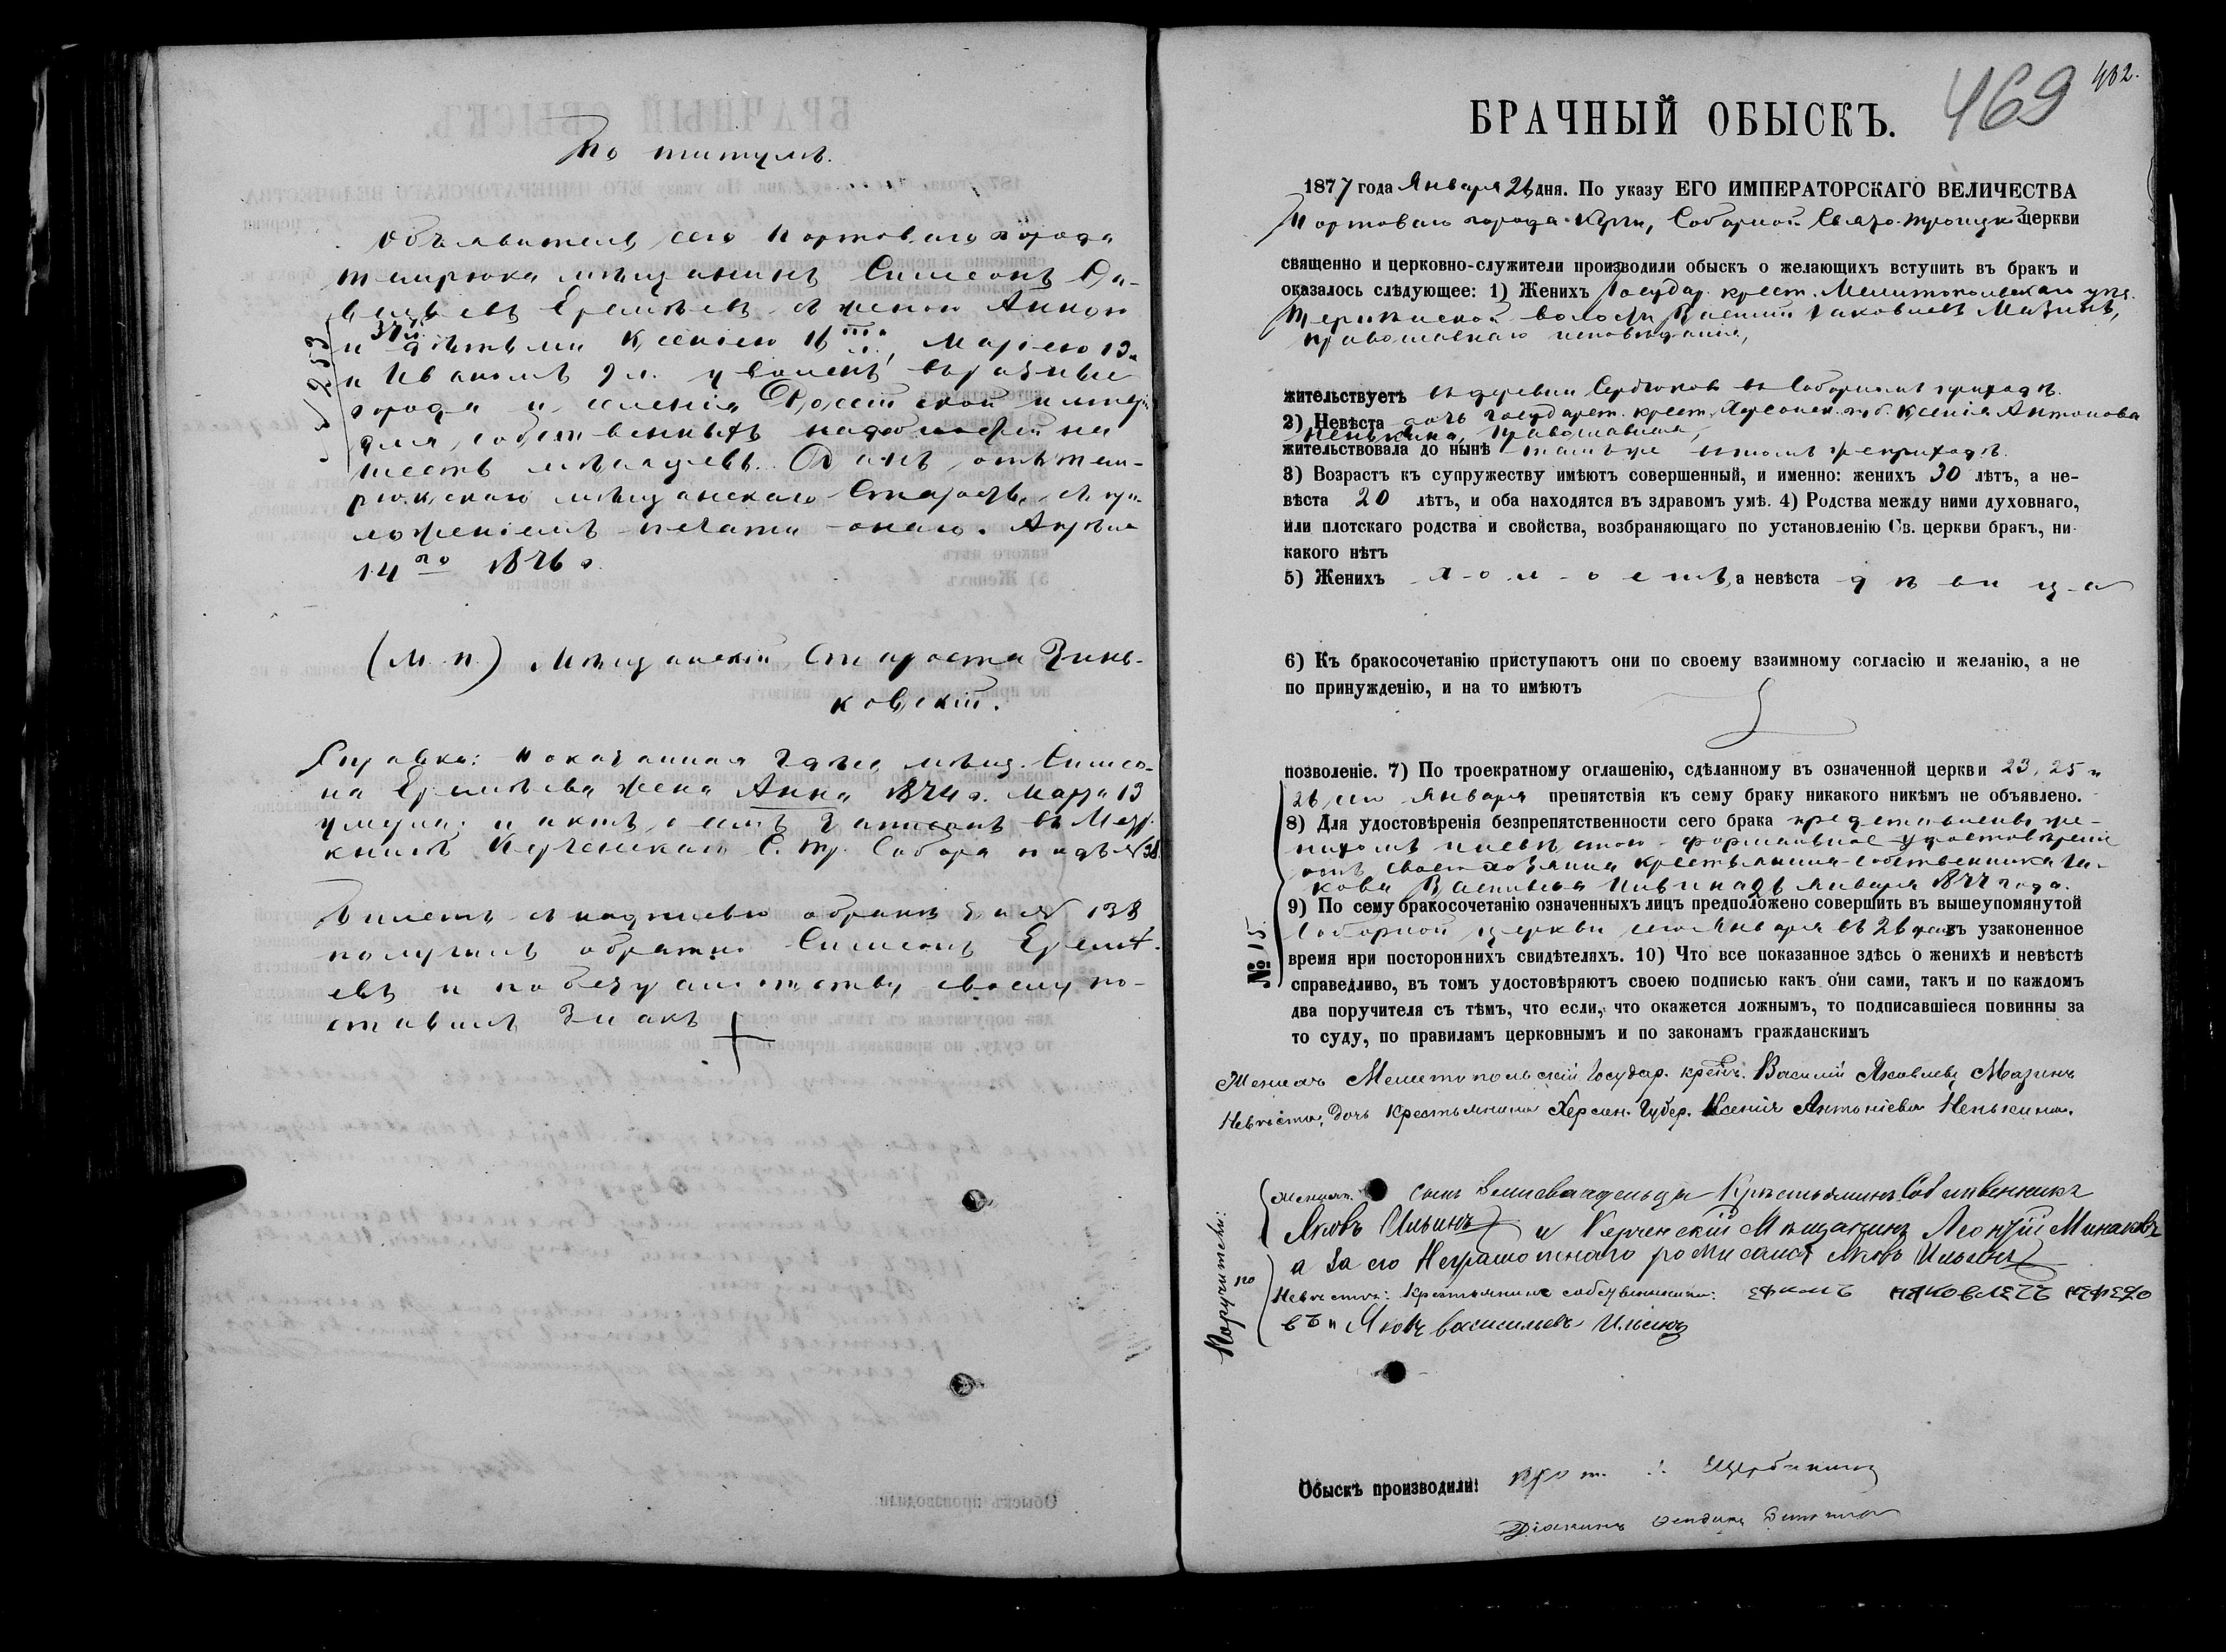 По титулѣ.
Объявитель сего портоваго города
Темрюка мѣщанинъ Симеонъ Са-
вельевъ Еремѣевъ съ женою Анною
37 л.
и дѣтьми Ксеніею 16 Маріею 13
и Иваномъ 9 л. уволенъ въ разные
города и селенія Россійской импер.
для собственныхъ надобностей на
шесть мѣсяцевъ. Данъ отъ Тем-
рюкскаго мѣщанскаго Старосты съ при-
ложеніемъ печати онаго. Апрѣля
14го 1876 г.
№ 253
(М. п.) Мѣщанскій Староста Зинь-
ковскій.
Справка: Показанная здѣсь мѣщ. Симео-
на Еремѣева жена Анна 1874 г. Марта 13
умерла и актъ о семъ записанъ въ Метр.
книгѣ Керченскаго С. Тр. Собора подъ № 38.
Билетъ съ надписью о бракѣ за № 138
получилъ обратно Симеонъ Еремѣ-
евъ и по безграмотству своему по-
ставилъ знакъ +
469
402.
БРАЧНЫЙ ОБЫСКЪ.
1877 года Января 26 дня. По указу ЕГО ИМПЕРАТОРСКАГО ВЕЛИЧЕСТВА
Портоваго города Керчи, Соборной Свято-Троицкой церкви
священно и церковно-служители производили обыскъ о желающихъ вступить въ бракъ и
оказалось слѣдующее: 1) Женихъ Государ. крест. Мелитопольскаго уѣз.
волости Василий Яковлевъ Мазинъ,
православнаго исповѣданія,
жительствуетъ въ деревни Сердюковъ въ Соборномъ приходѣ.
2) Невѣста дочь государст. крест. Херсонск. губ. Ксенія Антонова
Ненькина, православная,
жительствовала до нынѣ тамъ же въ томъ же приходѣ.
3) Возрастъ къ супружеству имѣютъ совершенный, и именно: женихъ 30 лѣтъ, а не-
вѣста 20 лѣтъ, и оба находятся въ здравомъ умѣ. 4) Родства между ними духовнаго,
или плотскаго родства и свойства, возбраняющаго по установленію Св. церкви бракъ, ни-
какого нѣтъ
5) Женихъ холостъ, а невѣста дѣвица
6) Къ бракосочетанію приступаютъ они по своему взаимному согласію и желанію, а не
по принужденію, и на то имѣютъ
позволеніе. 7) По троекратному оглашенію, сдѣланному въ означенной церкви 23, 25 и
26 сего Января препятствія къ сему браку никакого никѣмъ не объявлено.
8) Для удостовѣренія безпрепятственности сего брака представлены же-
нихомъ формальное удостовѣреніе
отъ своего хозяина крестьянина-собственника Я-
кова Васильева Ильина 26 января 1877 года.
9) По сему бракосочетанію означенныхъ лицъ предположено совершить въ вышеупомянутой
Соборной церкви сего Января въ 26 день въ узаконенное
время при постороннихъ свидѣтеляхъ. 10) Что все показанное здѣсь о женихѣ и невѣстѣ
справедливо, въ томъ удостовѣряютъ своею подписью какъ они сами, такъ и по каждомъ
два поручителя съ тѣмъ, что если, что окажется ложнымъ, то подписавшіеся повинны за
то суду, по правиламъ церковнымъ и по законамъ гражданскимъ
№ 15.
Женихъ Мелетопольскій Государ. крест. Василій Яковлевъ Мазинъ
Невѣста, дочь крестьянина Херсон. Губер. Ксенія Антоніева Ненькина.
Поручители:
по
Женихѣ. сынъ Крестьянинъ Собственникъ
Яковъ Ильинъ и Керченскій Мѣщанинъ Леонтій Минаковъ
а за его Неграмотнаго росписался Яковъ Ильинъ
Невѣстѣ: крестьянинъ собственникъ: ефимъ яковлевъ нефедо
въ и Яковъ васильевъ Ильинъ
Обыскъ производили: Прот. І. Щербакинъ
Діаконъ